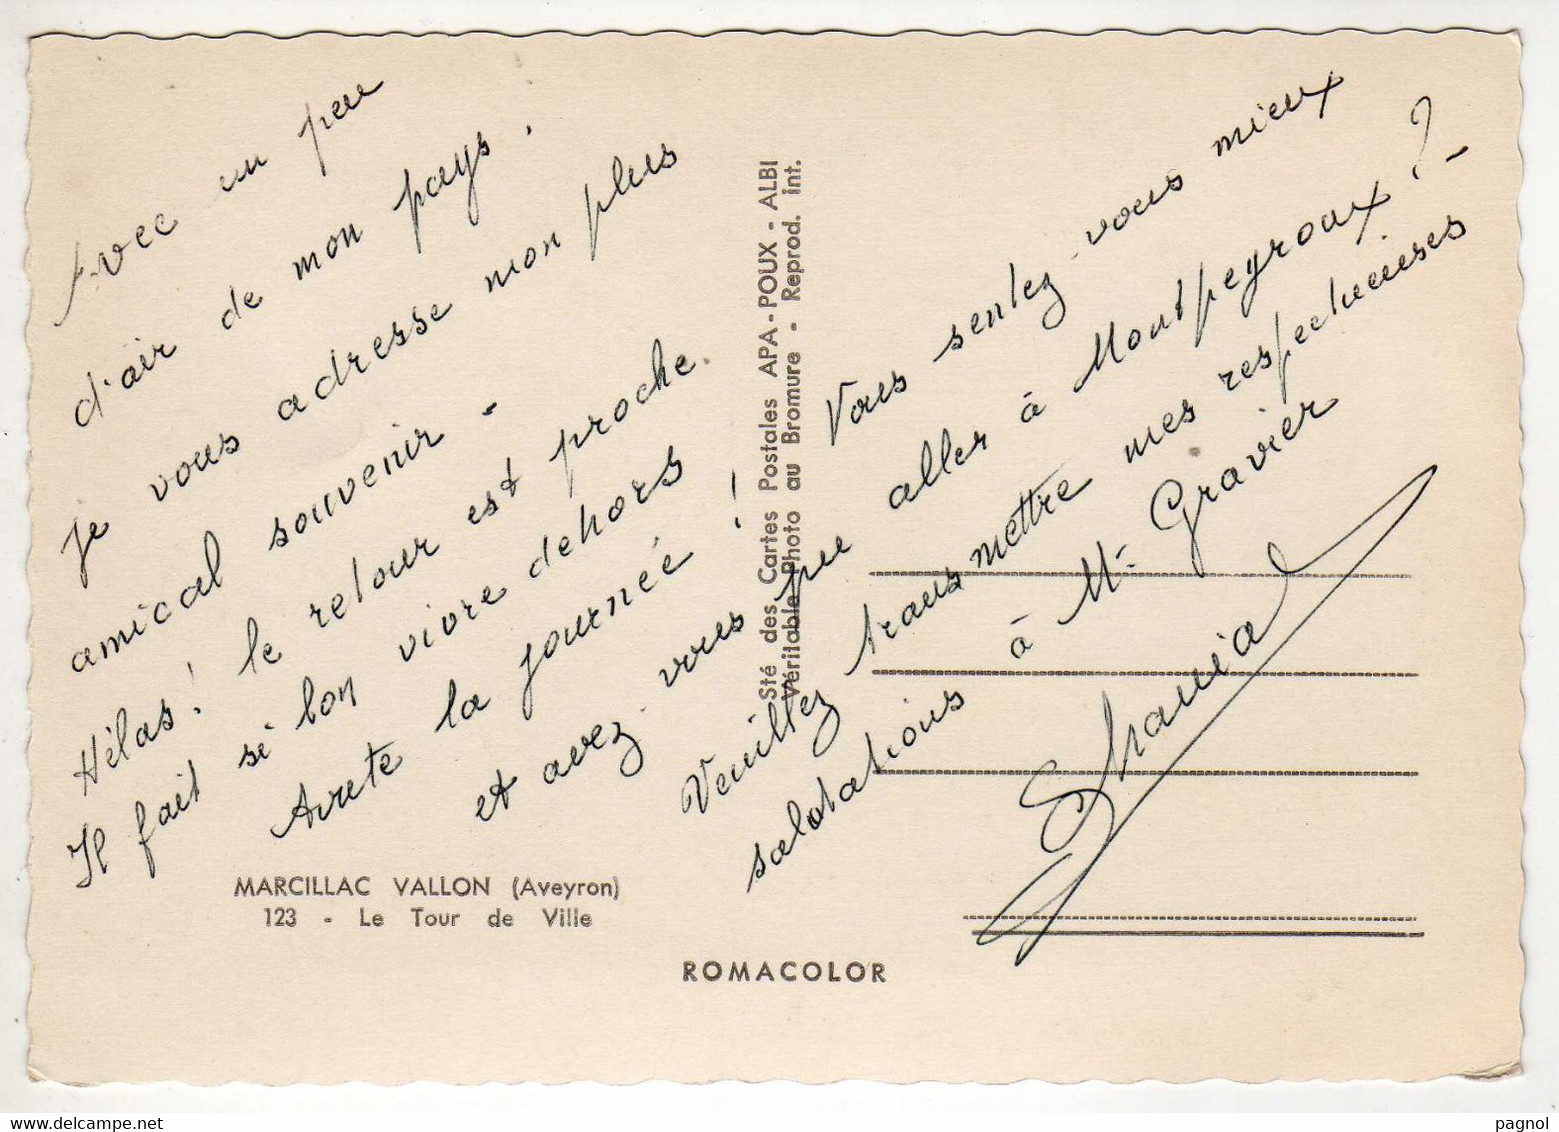 Avec un peu
d'air de mon pays.
Je vous adresse mon plus
amical souvenir -
Hélas! le retour est proche.
Il fait si bon vivre dehors
toute la journée!
Vous sentez-vous mieux
et avez-vous pu aller à Montpeyroux? -
Veuillez transmettre mes respectueuses
salutations à Mr Gravier
MARCILLAC VALLON (Aveyron)
123 - Le Tour de Ville
ROMACOLOR
Sté des Cartes Postales APA-POUX - ALBI
Véritable Photo au Bromure - Reprod. int.
pagnol